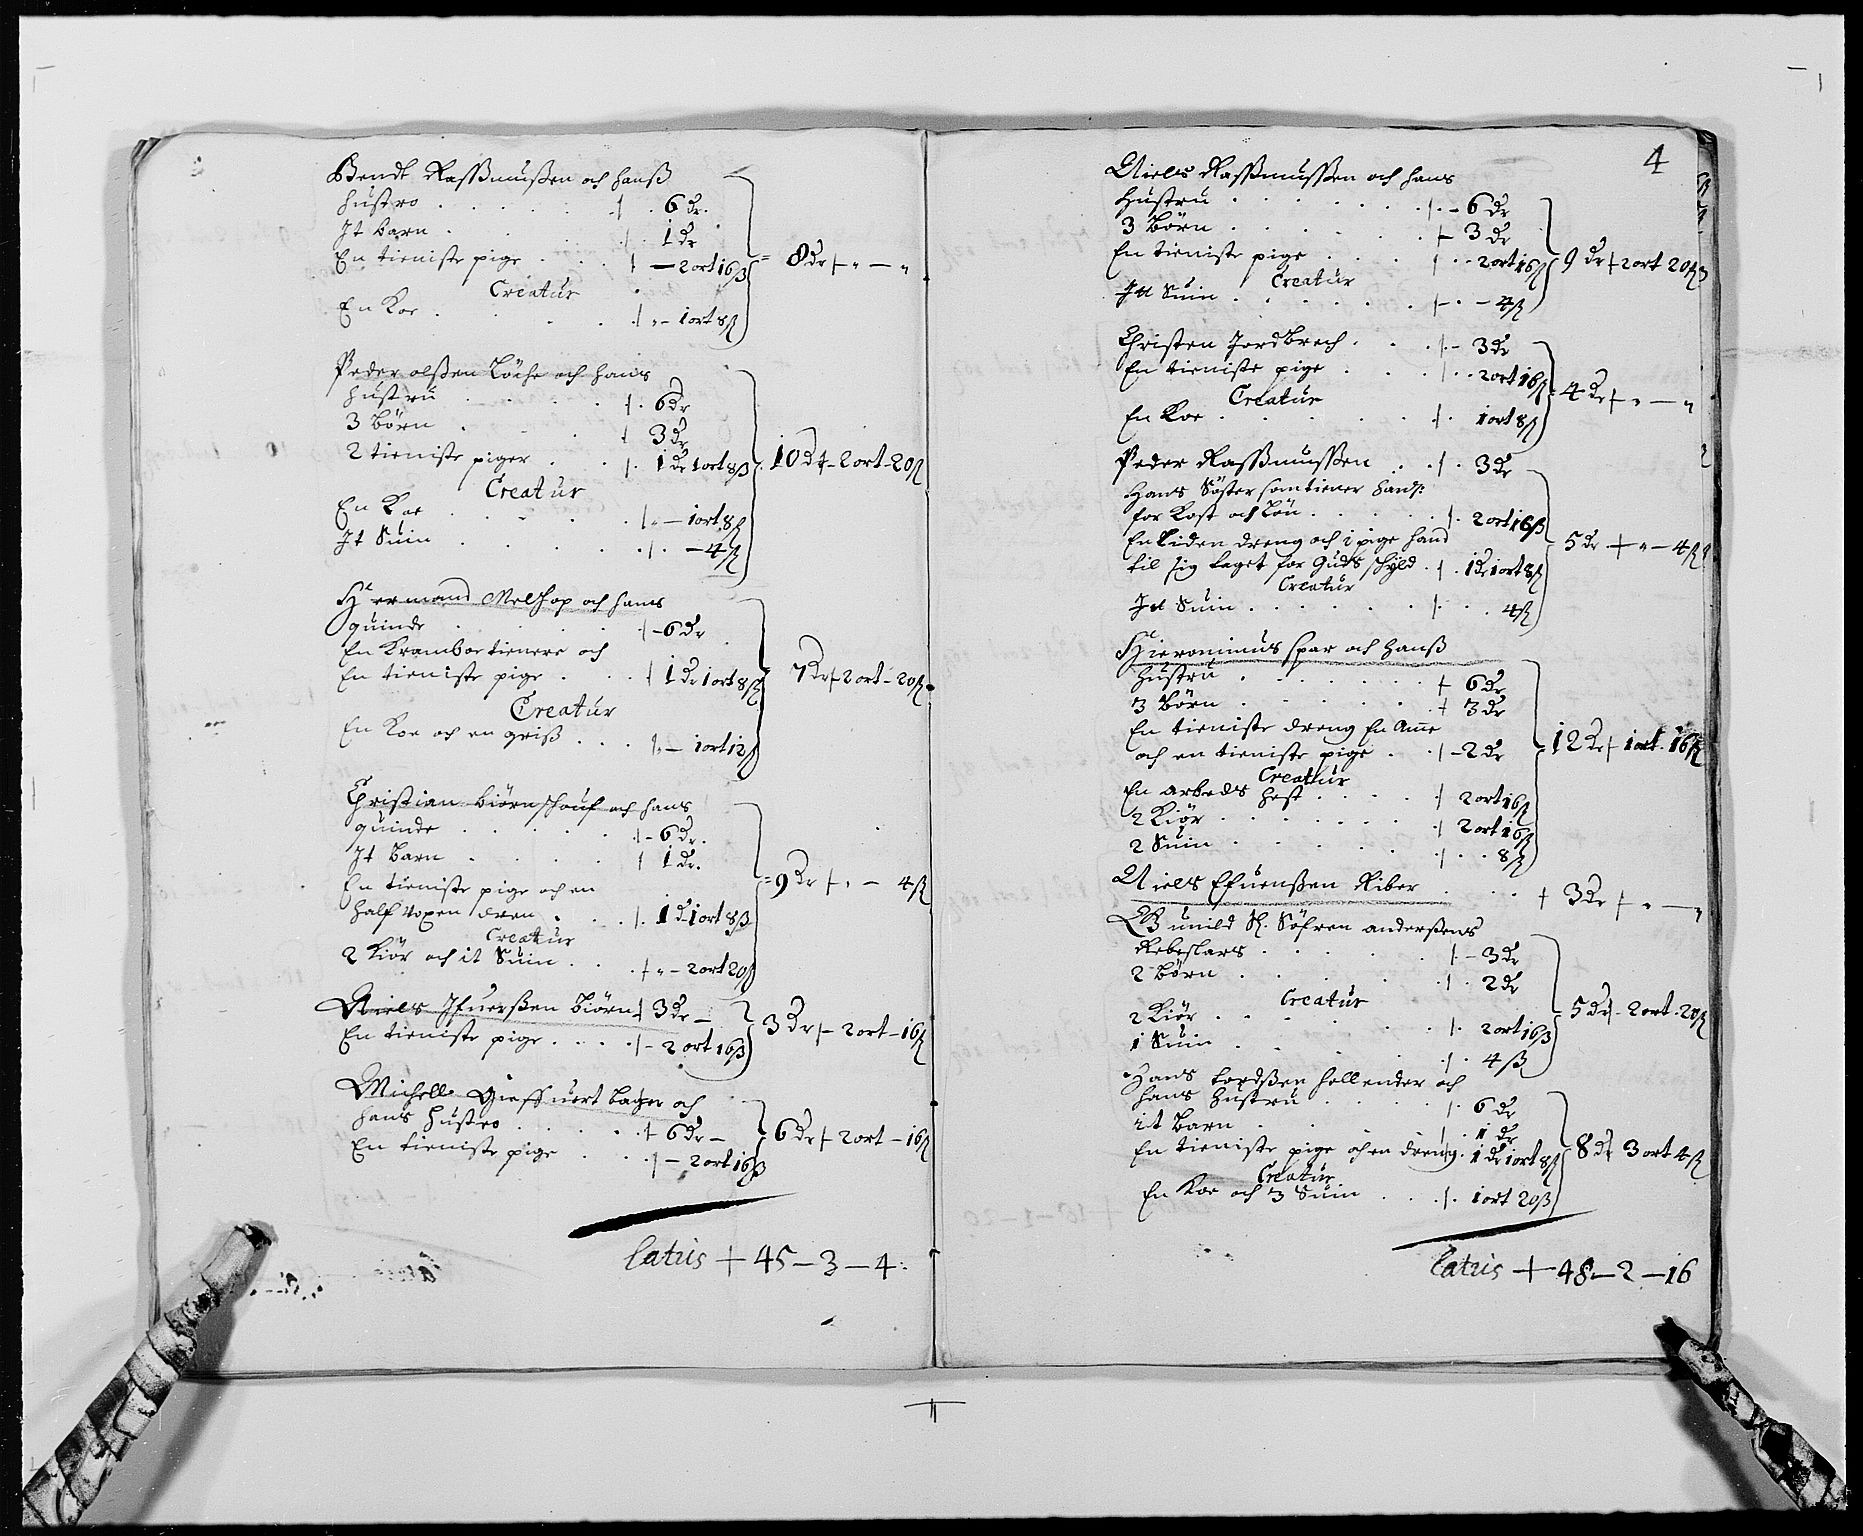 Bendt Rassmußen och hanß
hustro . . . . . ⸔ . 6 Dr.
It barn . . . . . ⸔ . 1 Dr
En tieniste pige . . . ⸔ — 2 ort 16 ß = 8 Dr ⸔ „ — „
Creatur
En Koe . . . . . ⸔ „ — 1 ort 8 ß
Peder olßen Löche och hans
hustru . . . . ⸔ . 6 Dr
3 Börn . . . . ⸔ 3 Dr
2 tieniste piger . . ⸔ . 1 Dr 1 ort 8 ß 10 Dr ⸔ 2 ort – 20 ß
Creatur
En Koe . . . . . ⸔ „ — 1 ort 8 ß
It Suin . . . . . ⸔ . — 4 ß
Hermand Melshop och hans
quinde . . . . . ⸔ – 6 Dr
En Kramboe tienere och
En tieniste pige . . . ⸔ 1 Dr 1 ort 8 ß 7 Dr ⸔ 2 ort – 20 ß
Creatur
En Koe och en griß . . . ⸔ „ — 1 ort 12 ß
Christian biörnschouf och hans
quinde . . . . . ⸔ – 6 Dr.
It Barn . . . . . ⸔ 1 Dr.
En tieniste pige och en = 9 Dr ⸔ „ — 4 ß
half voxen dren . . . ⸔ . 1 D 1 ort 8 ß
Creatur
2 Kiör och it Suin . . . ⸔ „ – 2 ort 20 ß
Niels Ifuerßen Biörn ⸔ 3 Dr — 3 Dr ⸔ – 2 ort – 16 ß
En tieniste pige . . . . ⸔ – 2 ort 16 ß
Michell Gieffuert bager och
hans Hustro . . . . . ⸔ 6 Dr — 6 Dr ⸔ 2 ort – 16 ß
En tieniste pige . . . ⸔ – 2 ort 16 ß
Latus + 45 – 3 – 4.
4
Niels Rassmussen och hans
Hustru . . . . . . . ⸔ . – 6 Dr
3 Börn . . . . . . ⸔ 3 Dr
En tieniste pige . . . . ⸔ . . 2 ort 16 ß 9 Dr ⸔ 2 ort 20 ß
Creatur
Jtt Suin . . . . . . ⸔ – . – 4 ß
Christen Jordbrech . . . ⸔ – 3 Dr
En tieniste pige . . . ⸔ . . 2 ort 16 ß 4 Dr ⸔ „ — „
Creatur
En Koe . . . . . . ⸔ . 1 ort 8 ß
Peder Rassmussen . . ⸔ . 3 Dr
Hans Söster som tiener hand:
for Kost och Lön . . . . . ⸔ . 2 ort 16 ß
En liden dreng och 1 pige hand 5 Dr ⸔ „ — 4 ß
til sig taget for Guds schyld . ⸔ . 1 Dr 1 ort 8 ß
Creatur
Jtt Suin . . . . . . ⸔ . . . 4 ß
Hieronimus spar och hanß
Hustru . . . . . . . ⸔ 6 Dr
3 Börn . . . . . . ⸔ 3 Dr
En tieniste dreng En Amme
och en tieniste pige . . ⸔ – 2 Dr 12 Dr ⸔ 1 ort . 16 ß
Creatur
En arbeds hest . . . . ⸔ 2 ort 16 ß
2 Kiör . . . . . . . ⸔ 2 ort 16 ß
2 Suin . . . . . . ⸔ . . 8 ß
Niels Efuenßen Riber . . . ⸔ 3 Dr ⸔ „ — „
Gunild Sl. Söfren anderßens
Rebeslars . . . . . . ⸔ – 3 Dr
2 Börn . . . . . . ⸔ . 2 Dr
Creatur 5 Dr – 2 ort . 20 ß
2 Kiör . . . . . . ⸔ . 2 ort 16 ß
1 Suin . . . . . . ⸔ . 4 ß
Hans Lordßen hollender och
hans Hustru . . . . ⸔ . 6 Dr
it Barn . . . . . ⸔ . 1 Dr
En tieniste pige och en dreng . 1 Dr 1 ort 8 ß 8 Dr 3 ort 4 ß
Creatur
En Koe och 3 Suin . . . ⸔ . 1 ort 20 ß
Latus + 48 – 2 – 16